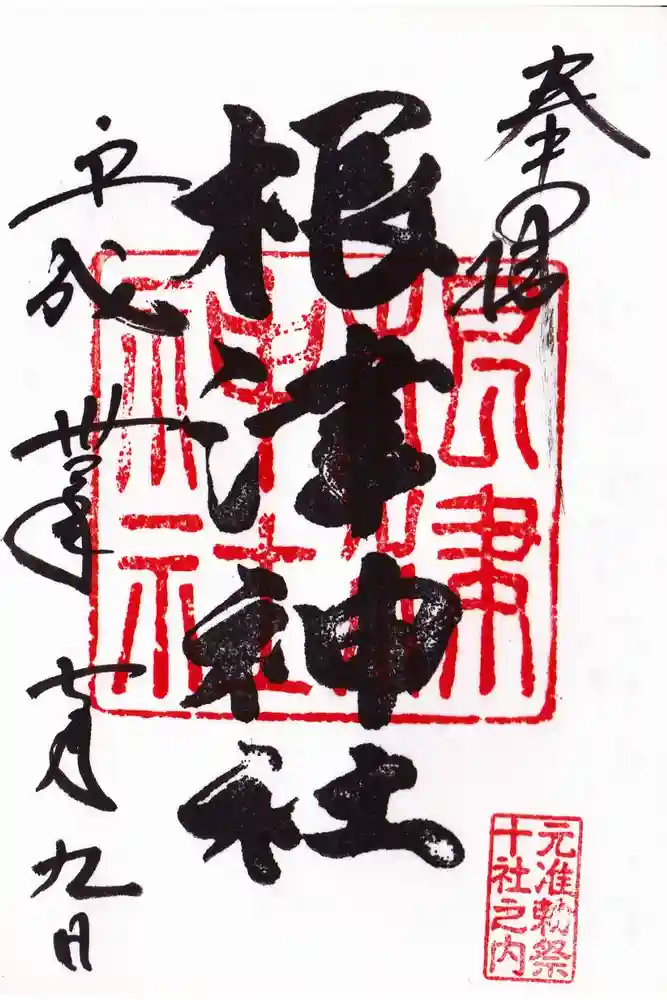 奉拝
根津神社
根津
神社
平成
七月九日
元准勅祭
十社之内